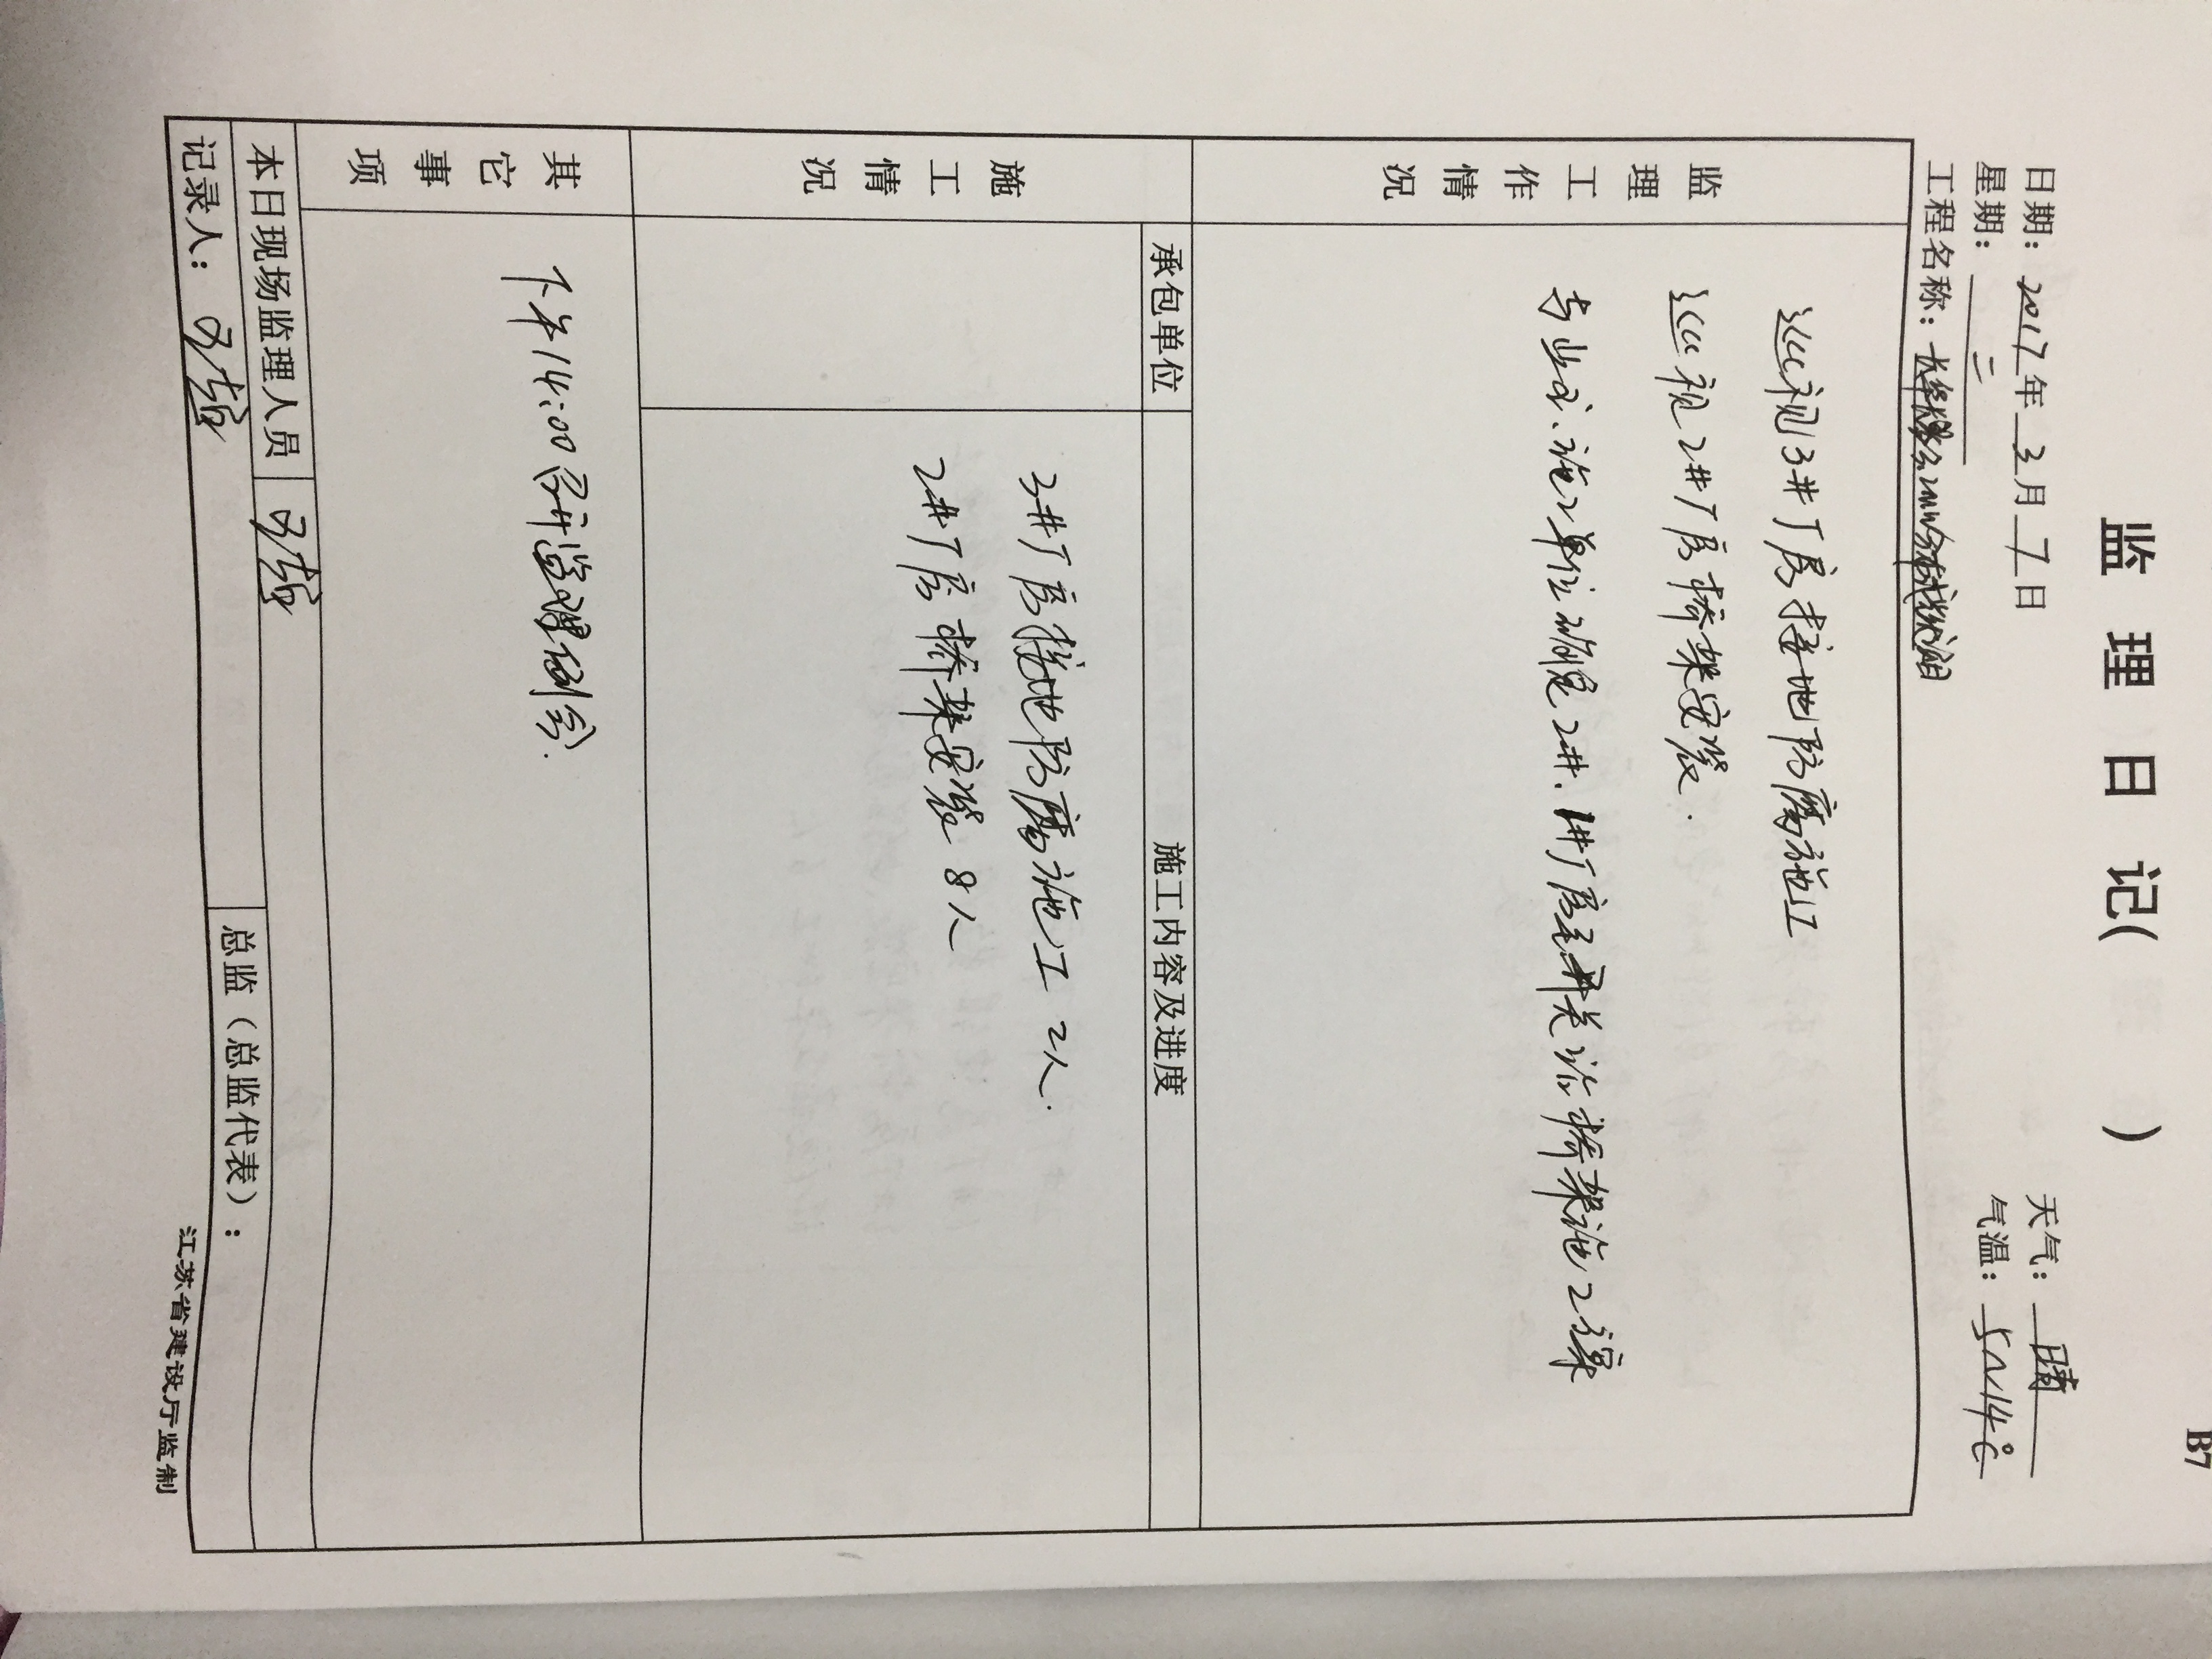 B7
监 理 日 记( )
日期：2017年 3月 7日 天气：晴
星期：二 气温：5~14℃
工程名称：
监理工作情况
巡视3#厂房接地防腐施工
巡视2#厂房桥架安装.
与业主、施工单位确定2#、1#厂房至开关站桥架施工方案
承包单位 施工内容及进度
施工情况
3#厂房接地防腐施工 2人.
2#厂房桥架安装 8人
其它事项
下午14:00召开监理例会.
本日现场监理人员
记录人： 总监（总监代表）：
江苏省建设厅监制